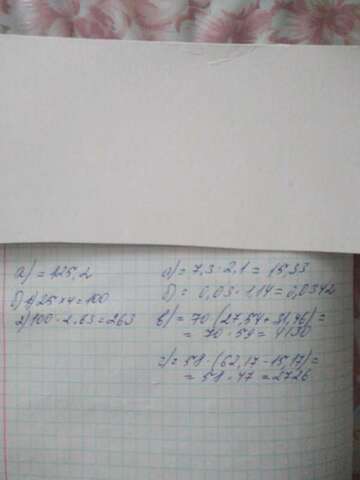 а) = 125,2
б) 1) 25 × 4 = 100
2) 100 · 2,63 = 263
а) = 7,3 · 2,1 = 15,33
б) = 0,03 · 1,14 = 0,0342
в) = 70 (27,54 + 31,46) =
= 70 · 59 = 4130
г) = 58 · (62,17 - 15,17) =
= 58 · 47 = 2726